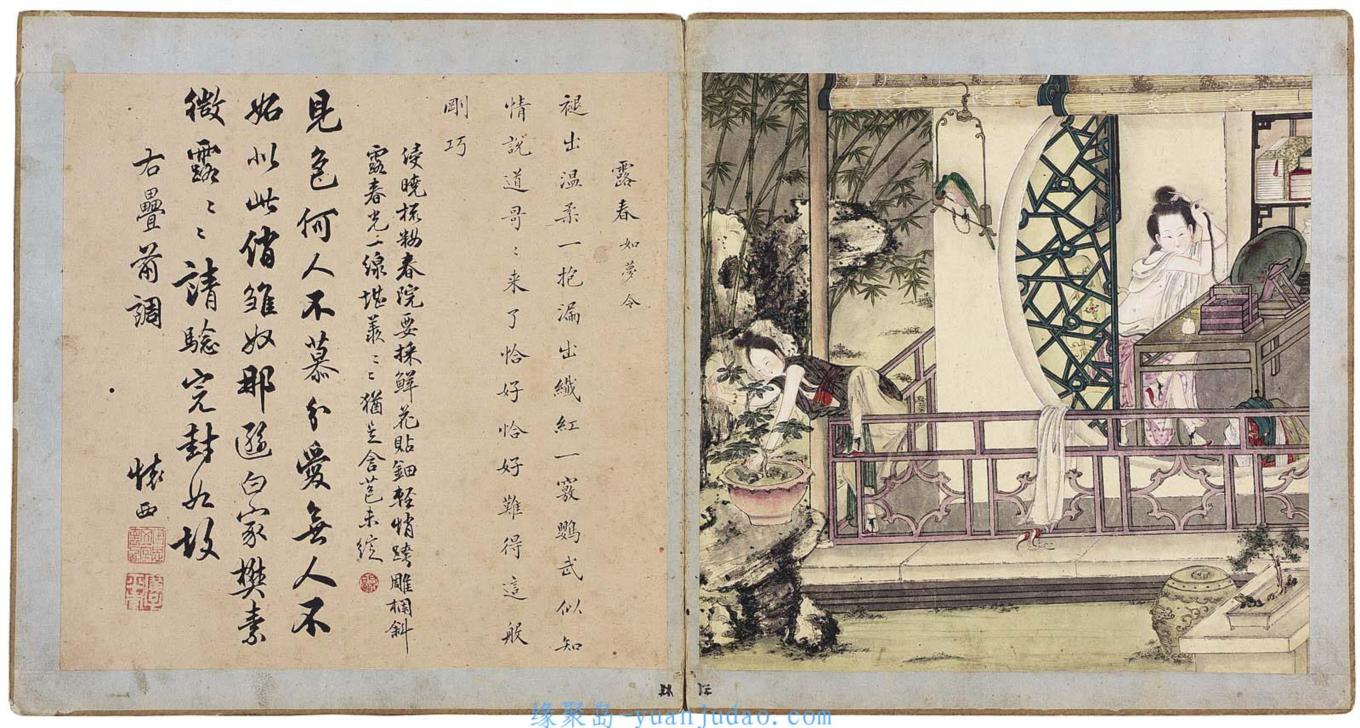 露春 如夢令
褪出温柔一抱漏出纖紅一竅鸚武似知
情說道哥〻来了恰好恰好難得這般
剛巧
侵曉梳粧春院要採鮮花貼鈿輕悄跨雕欄斜
露春光一線堪羨〻〻猶是含苞未綻
見色何人不慕分愛無人不
妬似此俏雏奴那遜白家樊素
微露〻〻請驗完封如故
右疊前調
懷西
缘聚岛-yuanjudao.com